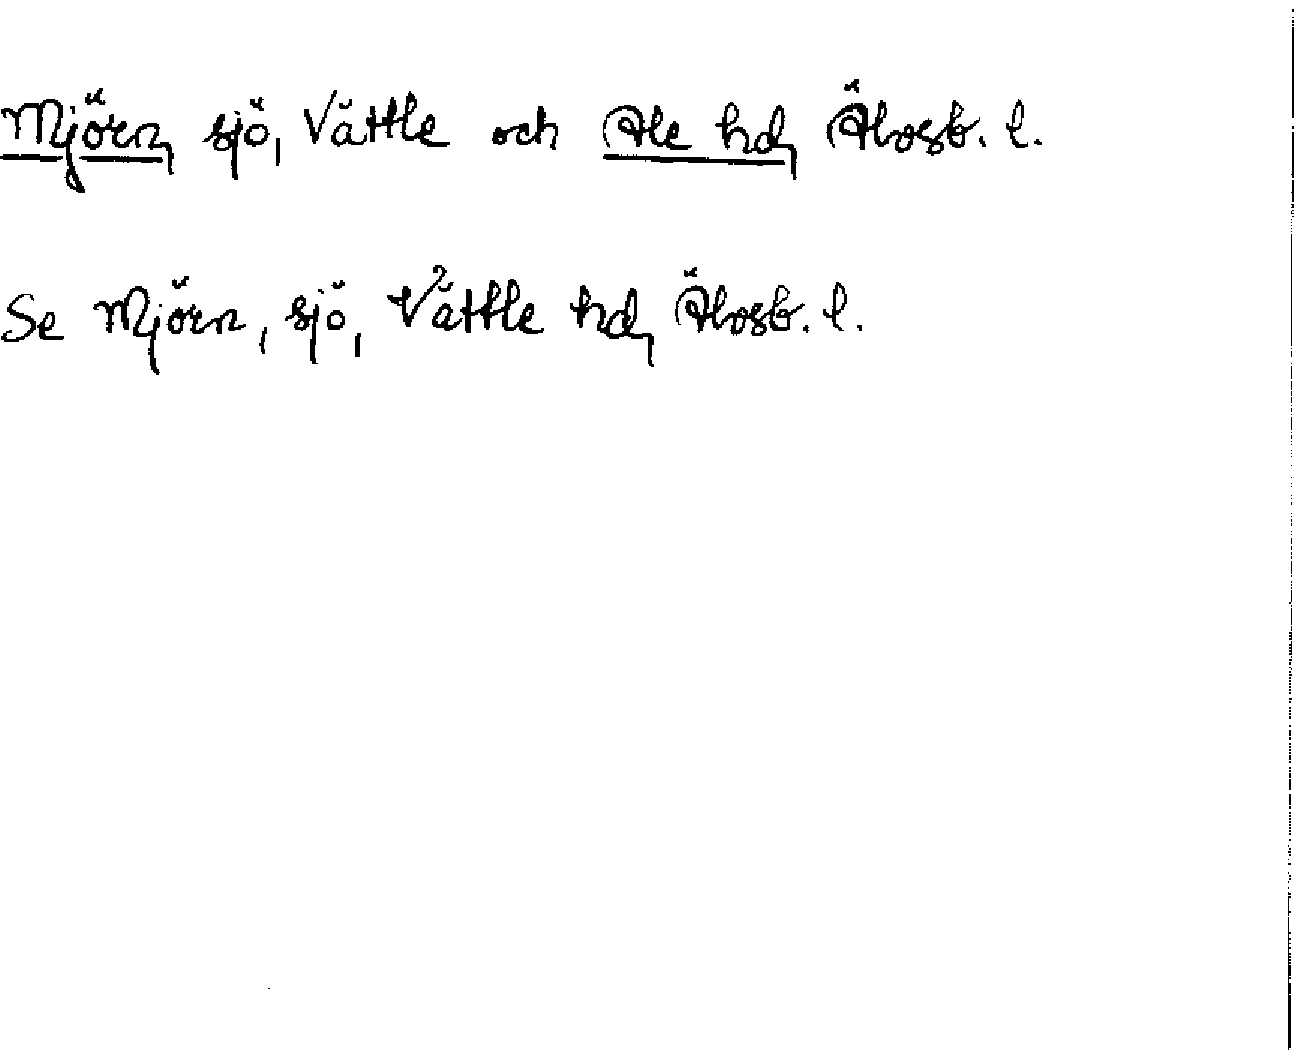 Mjörn, sjö, Vättle och Ale hd, Älvsb. l.
Se Mjörn, sjö, Vättle hd, Älvsb. l.